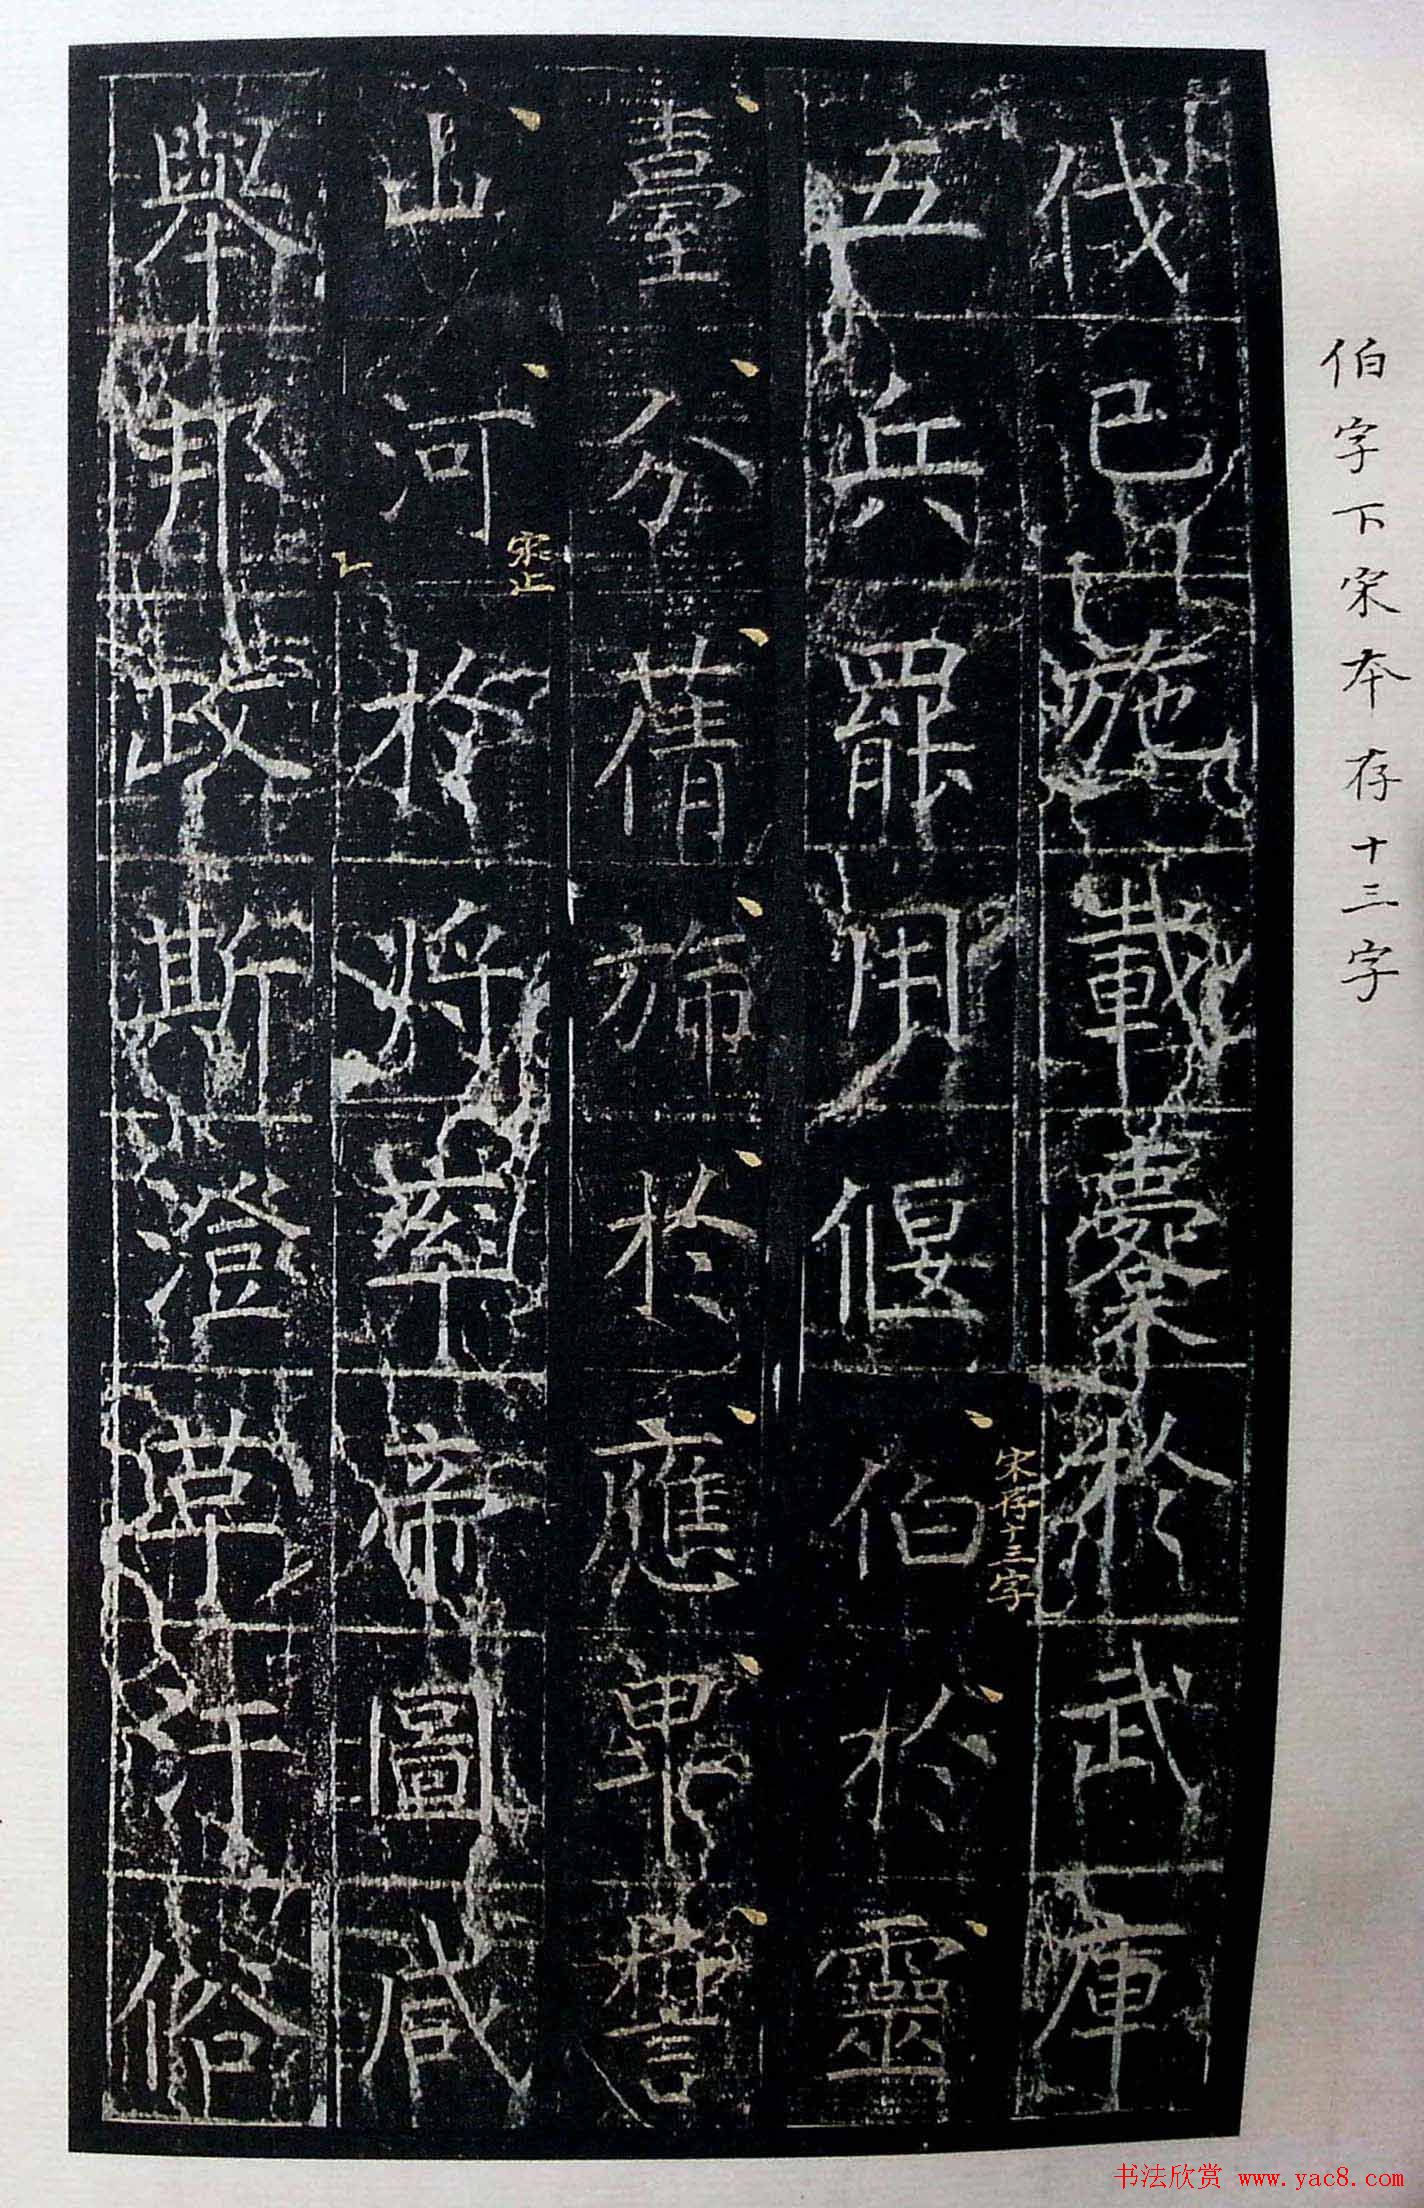 伯字下宋本存十三字
伐已施載櫜於武庫
五兵罷用偃伯於靈
宋存十三字
臺分蒨旆於應畢誓
山河於將率帝圖咸
宋止
舉邦政斯澄革汙俗
书法欣赏 www.yac8.com